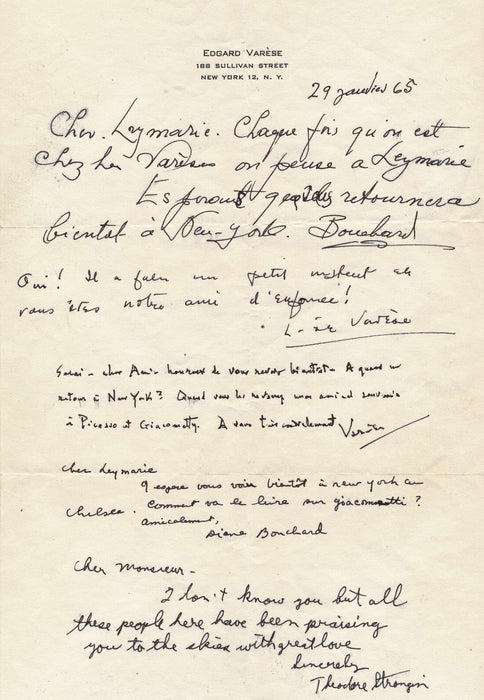 EDGARD VARÈSE
188 SULLIVAN STREET
NEW YORK 12, N. Y.
29 janvier 65
Cher. Leymarie. Chaque fois qu'on est
chez les Varèses on pense a Leymarie
Esperons retournera
bientot à New-York. Bouchard
Oui! Il a un petit
vous êtes notre ami d'enfance!
Varèse
cher Ami heureux de vous revoir bientot - A quand
retour à New York? Quand vous les mon amical souvenir
à Picasso et Giacometti. A vous très cordialement Varèse
Cher Leymarie
J espere vous voir bientôt à new york au
Chelsea. Comment va le livre sur giacometti?
amicalement,
Diane Bouchard
Cher Monsieur -
I don't know you but all
these people here have been praising
you to the skies with great love
Sincerely
Theodore Strongin